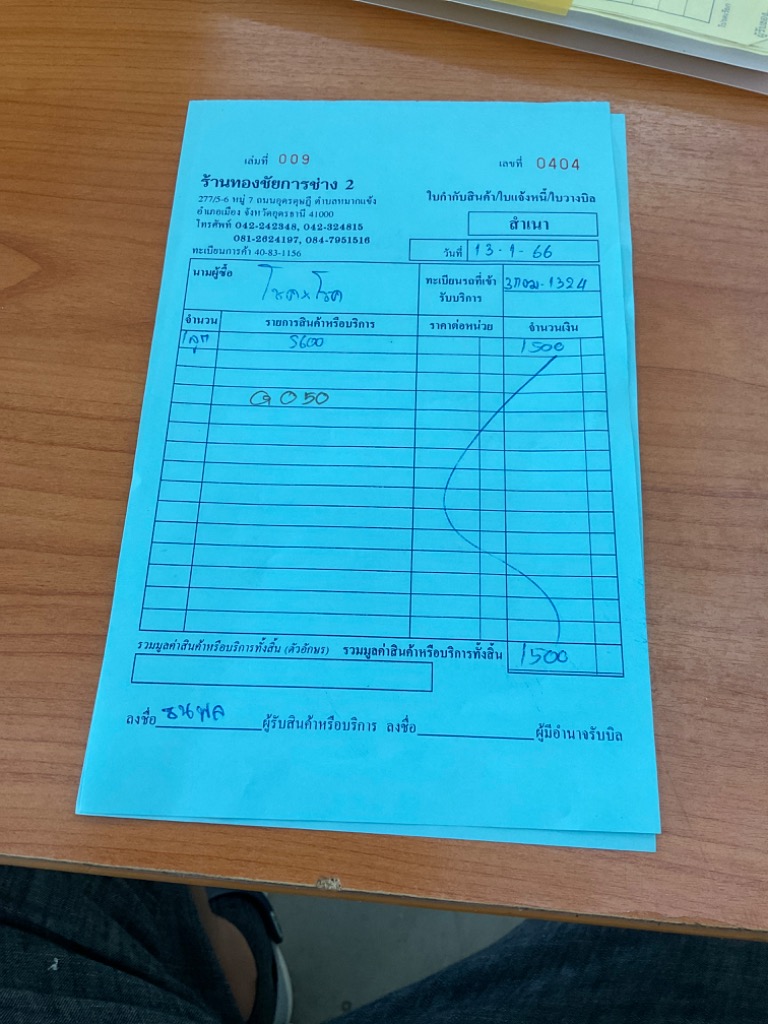 เล่มที่ 009
เลขที่ 0404
ร้านทองชัยการช่าง 2
277/5-6 หมู่ 7 ถนนอุดรดุษฎี ตำบลหมากแข้ง
อำเภอเมือง จังหวัดอุดรธานี 41000
โทรศัพท์ 042-242348, 042-324815
081-2624197, 084-7951516
ทะเบียนการค้า 40-83-1156
ใบกำกับสินค้า/ใบแจ้งหนี้/ใบวางบิล
สำเนา
วันที่ 13-1-66
นามผู้ซื้อ
ทะเบียนรถที่เข้ารับบริการ 1324
จำนวน รายการสินค้าหรือบริการ ราคาต่อหน่วย จำนวนเงิน
1 ลูก 5600 1500
G 050
รวมมูลค่าสินค้าหรือบริการทั้งสิ้น (ตัวอักษร) รวมมูลค่าสินค้าหรือบริการทั้งสิ้น 1500
ลงชื่อ ธนพล ผู้รับสินค้าหรือบริการ ลงชื่อ ผู้มีอำนาจรับบิล